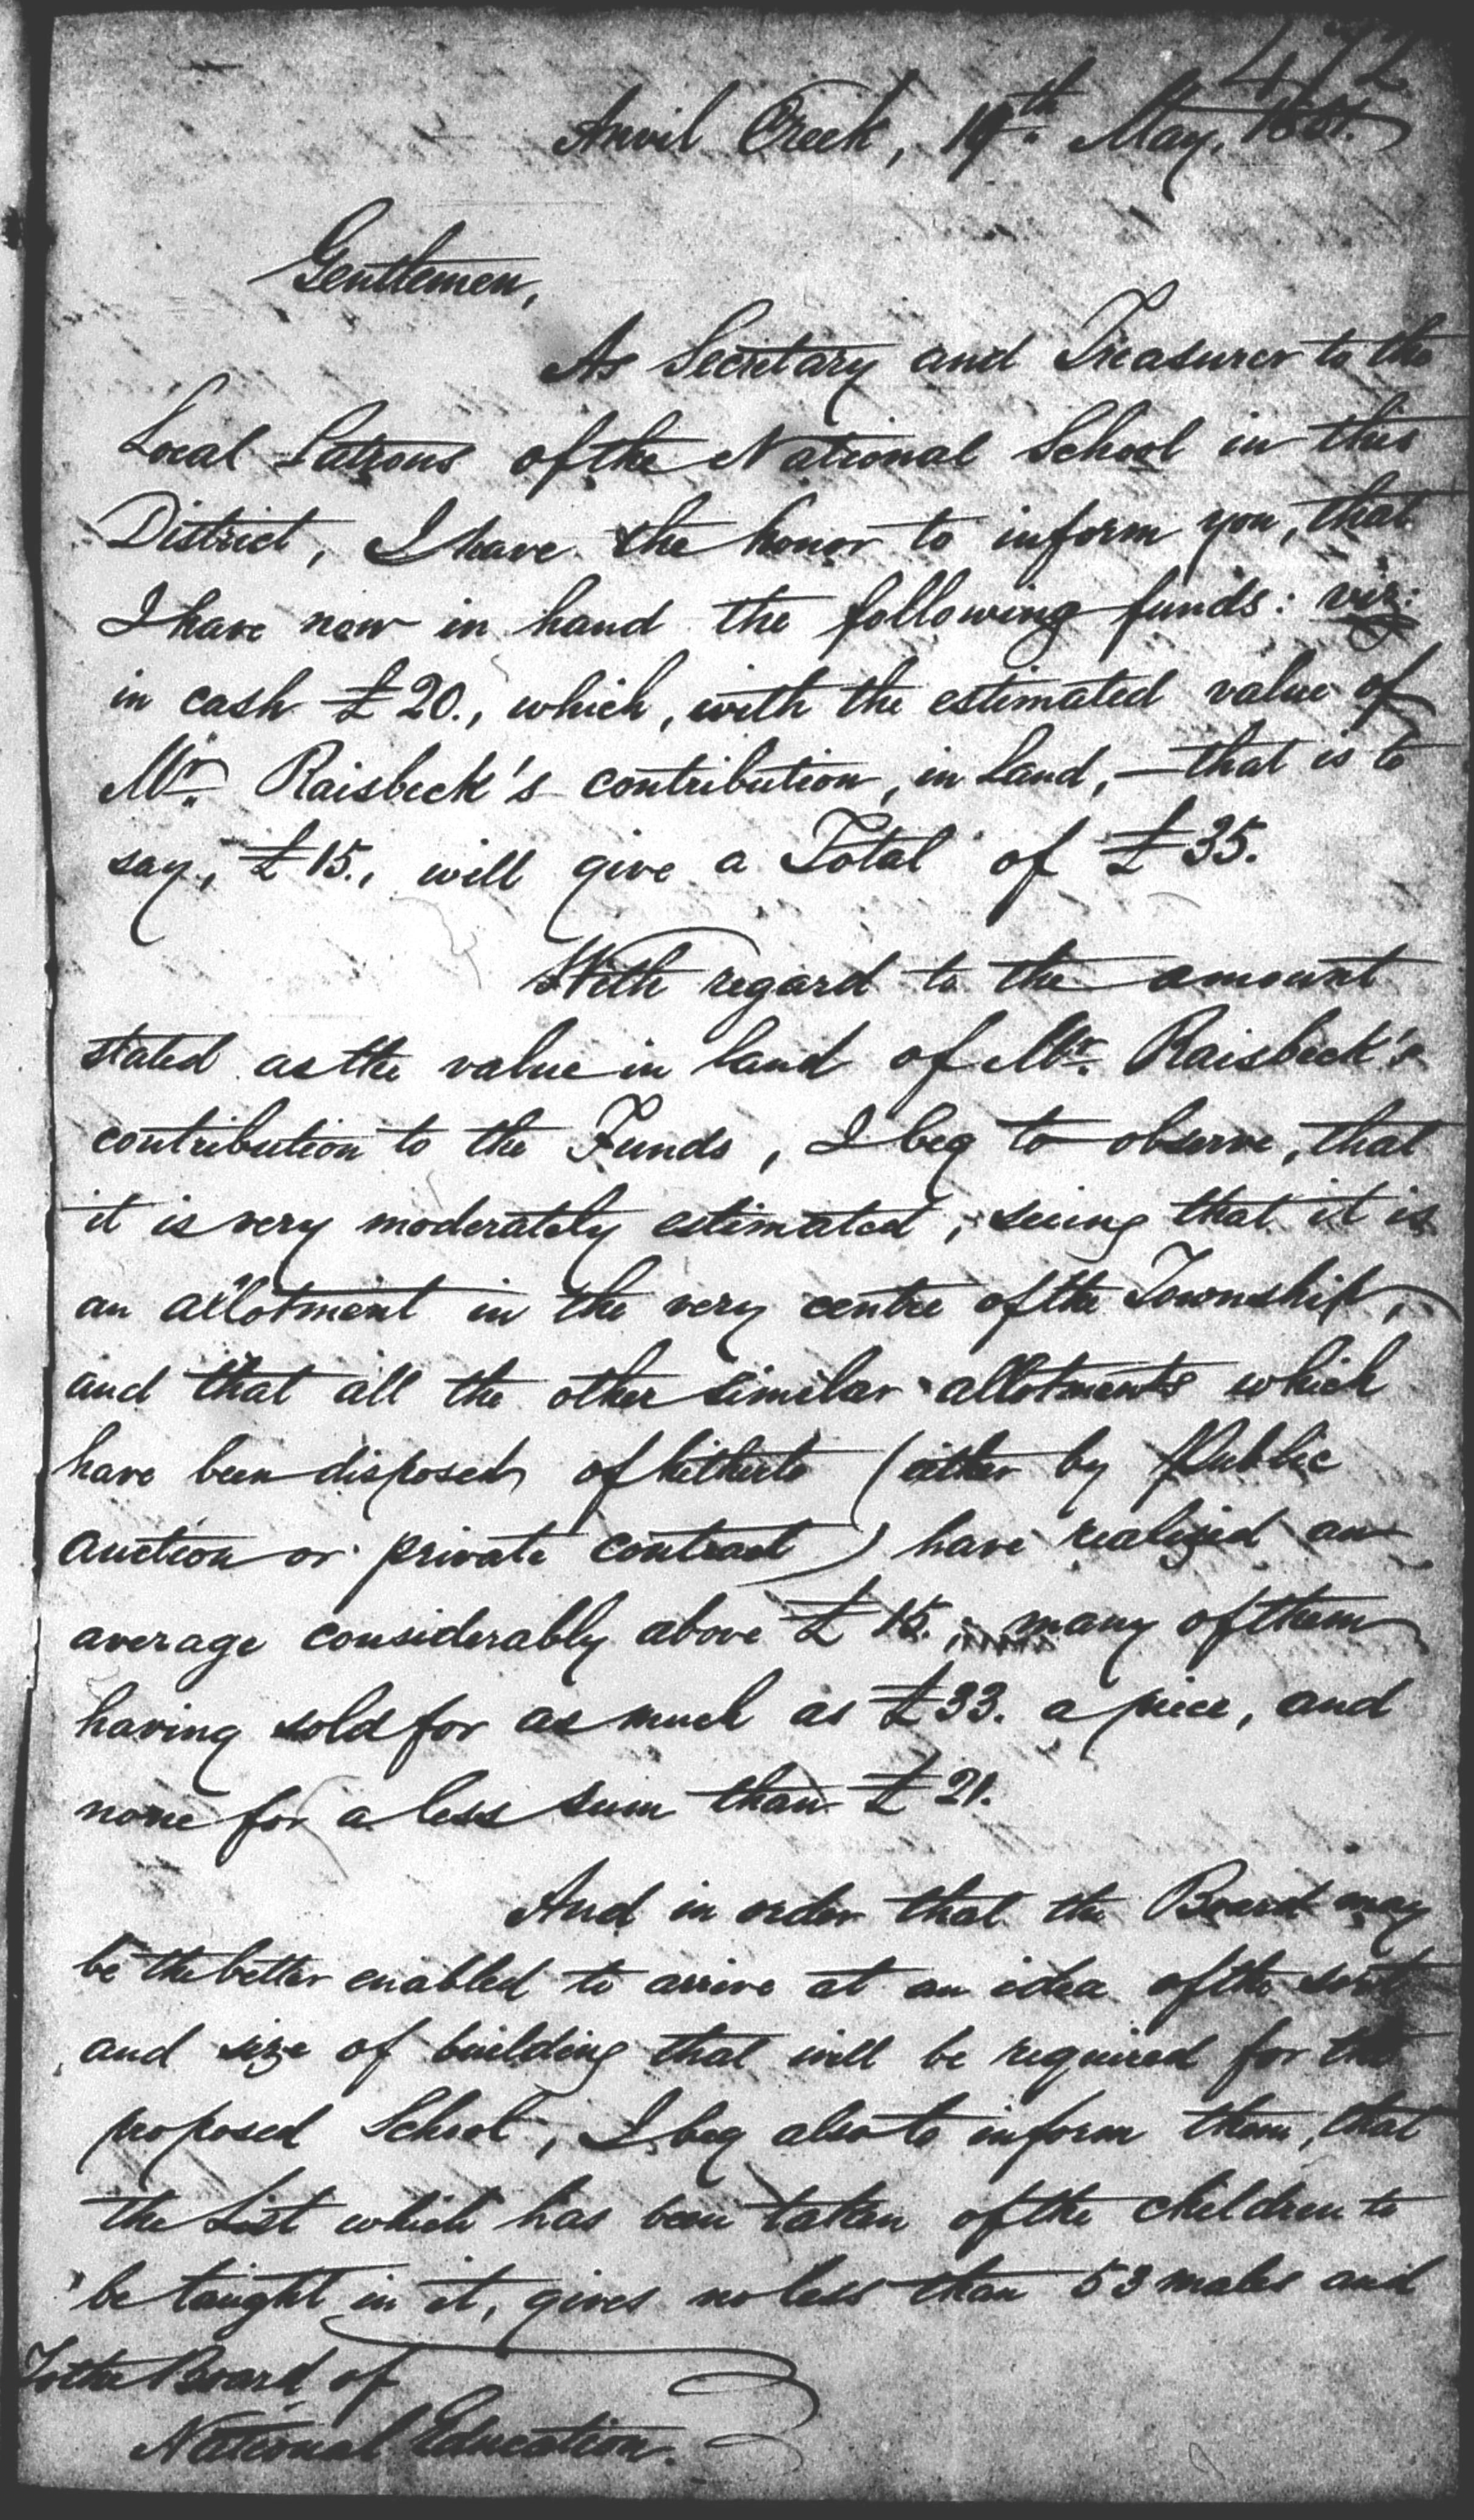 472
Anvil Creek, 19th May, 1851.
Gentlemen,
As Secretary and Treasurer to the
Local Patrons of the National School in this
District, I have the honor to inform you, that
I have now in hand the following funds: viz:
in cash £20., which, with the estimated value of
Mr. Raisbeck's contribution, in Land, — that is to
say, £15., will give a Total of £35.
With regard to the amount
stated as the value in land of Mr. Raisbeck's
contribution to the Funds, I beg to observe, that
it is very moderately estimated, seeing that it is
an allotment in the very centre of the Township,
and that all the other similar allotments which
have been disposed of hitherto (either by Public
auction or private contract) have realized an
average considerably above £15., many of them
having sold for as much as £33. a piece, and
none for a less sum than £21.
And in order that the Board may
be the better enabled to arrive at an idea of the sort
and size of building that will be required for the
proposed School, I beg also to inform them, that
the List which has been taken of the children to
be taught in it, gives no less than 53 males and
To the Board of
National Education.